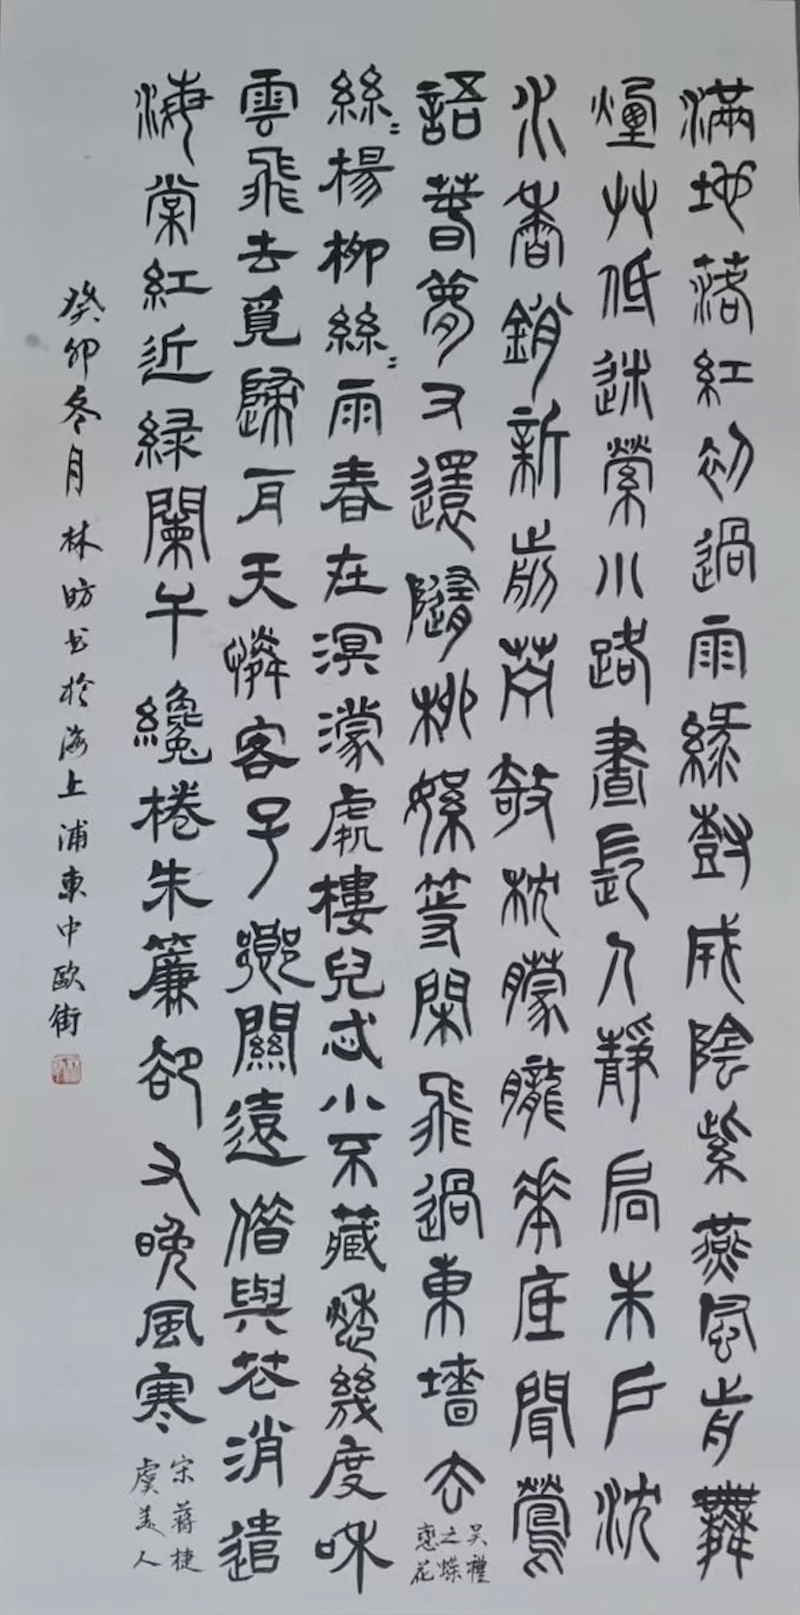 滿地落紅初過雨綠樹成陰紫燕風前舞
煙艸低迷縈小路晝長人靜扃朱戶沈
水香銷新剪苧欹枕朦朧花底聞鶯
語春夢又還隨柳絮等閒飛過東牆去
吳禮
之蝶
戀花
絲〻楊柳絲〻雨春在溟濛處樓兒忒小不藏愁幾度和
雲飛去覓歸舟天憐客子鄉關遠借與花消遣
海棠紅近綠闌干纔捲朱簾卻又晚風寒
宋蔣捷
虞美人
癸卯冬月林昉书於海上浦東中歐街